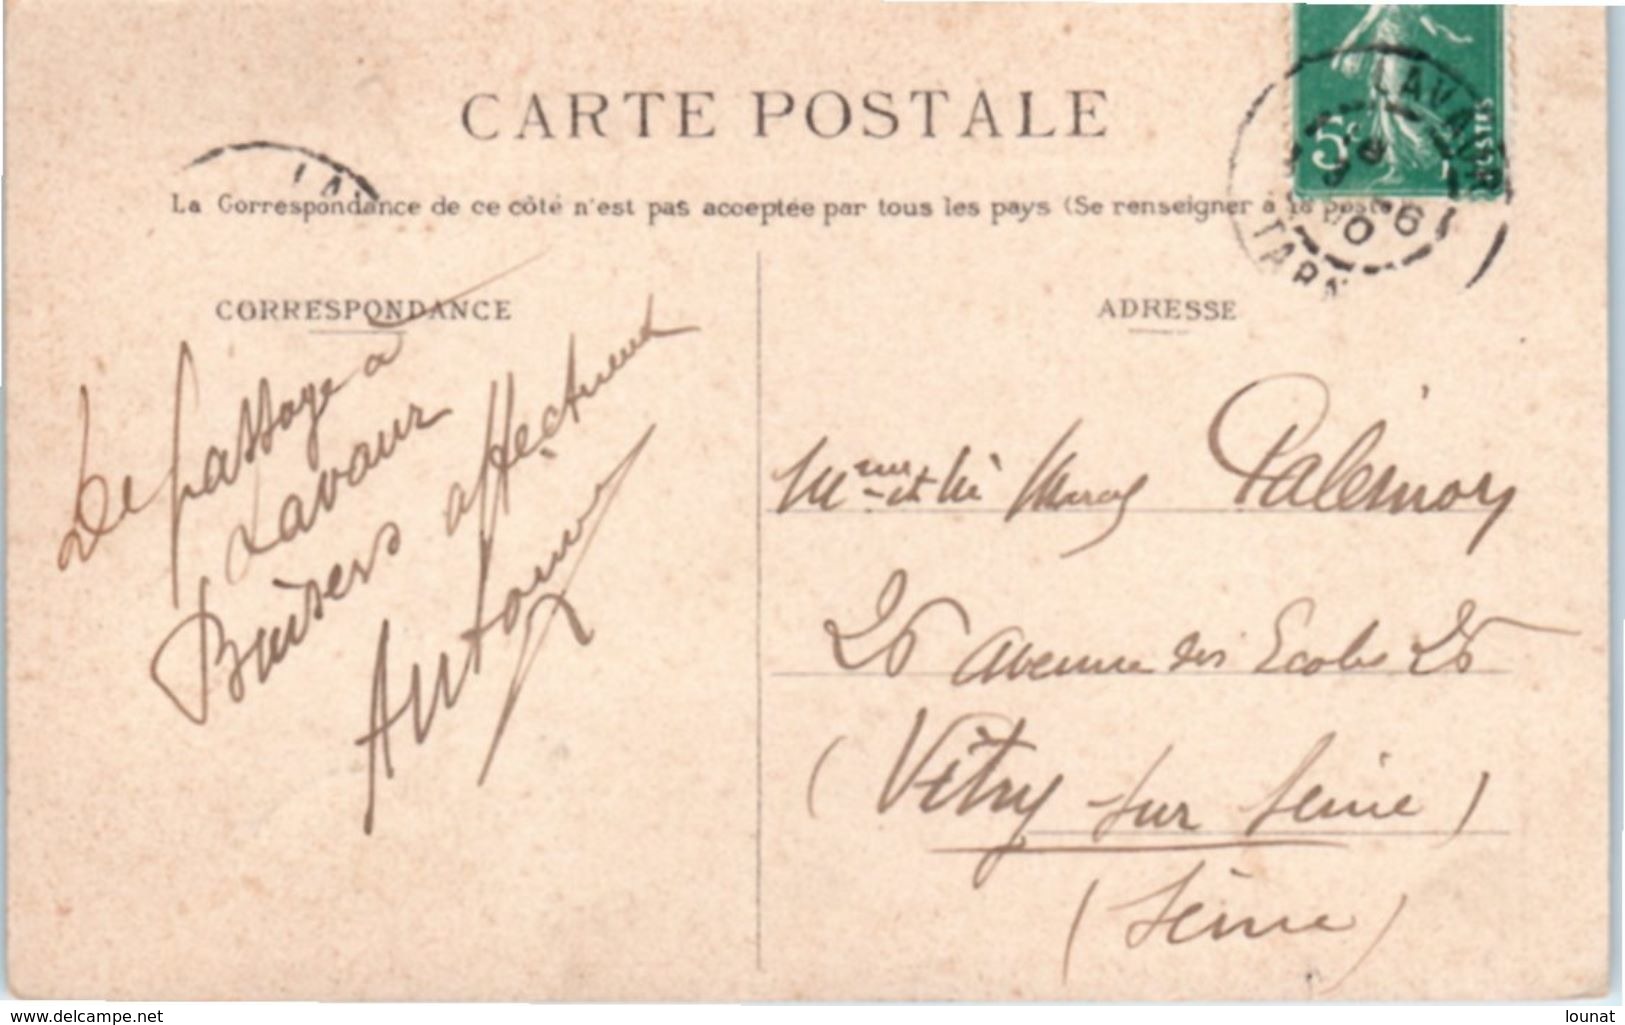 CARTE POSTALE
La Correspondance de ce côté n'est pas acceptée par tous les pays (Se renseigner à la poste
CORRESPONDANCE
ADRESSE
5c
POSTES
LAVAUR
TARN
LA
De passage à
Lavaur
Baisers affectueux
Mme et Mr Palemoy
26 avenue des Ecoles 26
(Vitry sur Seine)
(Seine)
www.delcampe.net
lounat